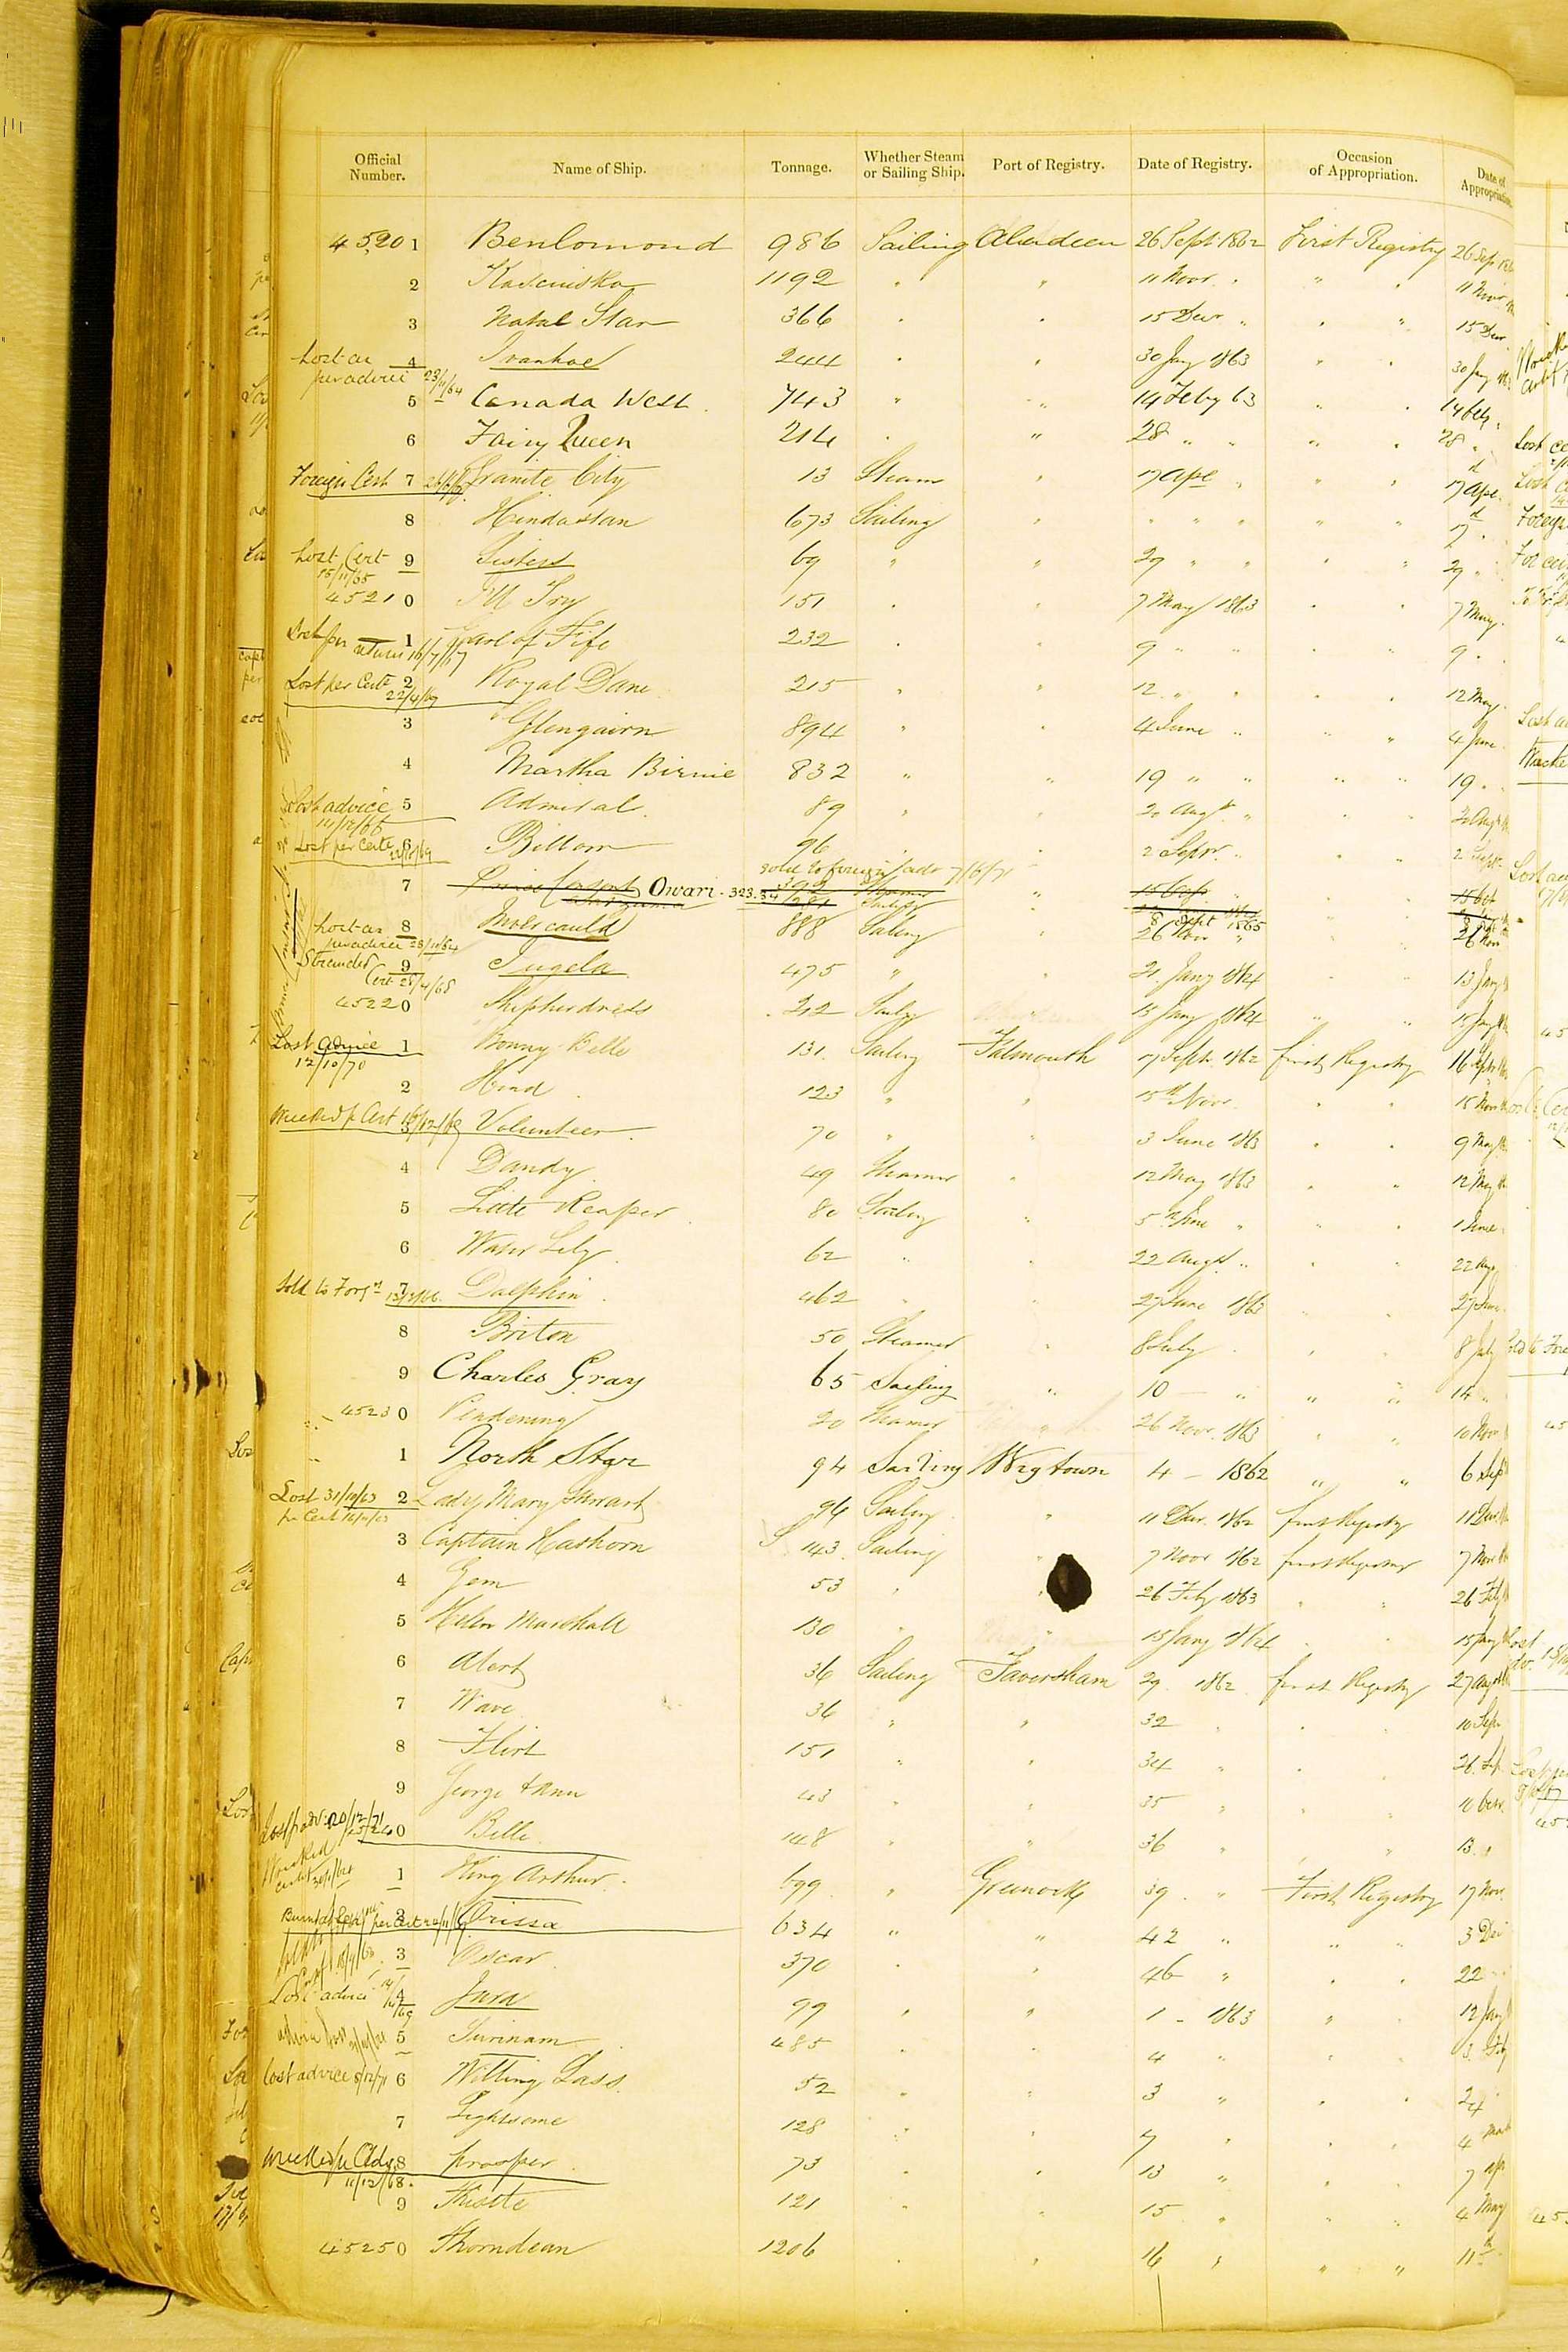 Official Number. Name of Ship. Tonnage. Whether Steam or Sailing Ship. Port of Registry. Date of Registry. Occasion of Appropriation. Date of Appropriation
45201 Benlomond 986 Sailing Aberdeen 26 Sept 1862 First Registry 26 Sep
2 Kosciusko 1192 " " 11 Novr " " " 11 Novr
3 Natal Star 366 " " 15 Decr " " " 15 Decr
Lost as per advice 23/11/64 4 Ivanhoe 244 " " 30 Jany 1863 " " 30 Jany
5 Canada West 743 " " 14 Feby 63 " " 14 Feby
6 Fairy Queen 214 " " 28 " " " " 28 "
Foreign Cert 7 Granite City 13 Steam " 17 Ape " " " 17 Ape
8 Hindostan 673 Sailing " " " " " " 17 "
Lost Cert 15/11/65 9 Sisters 69 " " 29 " " " " 29 "
45210 I'll Try 151 " " 7 May 1863 " " 7 May
1 Earl of Fife 232 " " 9 " " " " 9 "
Lost per Certe 22/4/69 2 Royal Dane 215 " " 12 " " " " 12 May
3 Glengairn 894 " " 4 June " " " 4 June
4 Martha Birnie 832 " " 19 " " " " 19 "
Lost advice 14/12/66 5 Admiral 89 " " 20 Augt " " " 20 Augt
Lost per Certe 6 Billow 96 " " 2 Sepr " " " 2 Sept
sold to foreign 7/6/71
7 Prince Consort Owari 323.34 " 15 Oct
8 Sept 1865
Lost as per advice 28/10/64 8 Invercauld 888 Sailing " 26 Nov " " " 26 Nov
Stranded Cert 28/4/65 9 Tugela 475 " " 21 Jany 1864 " " 13 Jany
45220 Shepherdess 212 Sailg 15 Jany 1864 " " 15 Jany
Lost Advice 12/10/70 1 Bonny Belle 131 Sailing Falmouth 17 Septr 1862 first Registry 16 Septr
2 Hind 123 " " 15th Novr " " 15 Nov
Wrecked p Cert 3 Volunteer 70 " " 3 June 1863 " " 9 May
4 Dandy 49 Steamer " 12 May 1863 " " 12 May
5 Little Reaper 80 Sailing " 5 June " " " 1 June
6 Water Lily 62 " " 22 Augt " " " 22 Aug
Sold to Forgn 7 Dolphin 462 " " 27 June 1863 " " 27 June
8 Briton 50 Steamer " 8 July " " " 8 July
9 Charles Gray 65 Sailing " 10 " " " 14 "
45230 Pendennis 20 Steamer " 26 Novr 1863 " " 10 Nov
1 North Star 94 Sailing Wigtown 4 - 1862 " " 6 Sep
Lost 31/10/63 per Cert 2 Lady Mary Stewart 94 Sailing " 11 Decr 1862 first Registry 11 Decr
3 Captain 143 Sailing " 7 Novr 1862 first Registry 7 Nov
4 Gem 53 " " 26 Feby 1863 " " 26 Feby
5 Helen Marshall 130 " " 15 Jany 1864 " " 15 Jany
6 Alert 36 Sailing Faversham 29 1862 first Registry 27 Aug
7 Wave 36 " " 32 " " " 10 Sep
8 Flirt 151 " " 34 " " " 26
9 George & Ann 43 " " 35 " " " 10 Octr
45240 Belle 148 " " 36 " " " 13 "
Wrecked 1 King Arthur 699 " Greenock 39 " First Registry 17 Nov
Burnt at Sea per Cert 2 Orissa 634 " " 42 " " " 3 Dec
3 Oscar 370 " " 46 " " " 22
Lost advice 4 Jura 99 " " 1 - 1863 " " 12 Jany
5 Surinam 485 " " 4 " " " 3 Feby
Lost advice 8/12/71 6 Willing Lass 52 " " 3 " " " 24
7 Lightsome 128 " " 7 " " " 4 Mar
Wrecked 11/12/68 8 Prosper 73 " " 13 " " " 7 Ap
9 Thistle 121 " " 15 " " " 4 May
45250 Thorndean 1206 " " 16 " " " 11